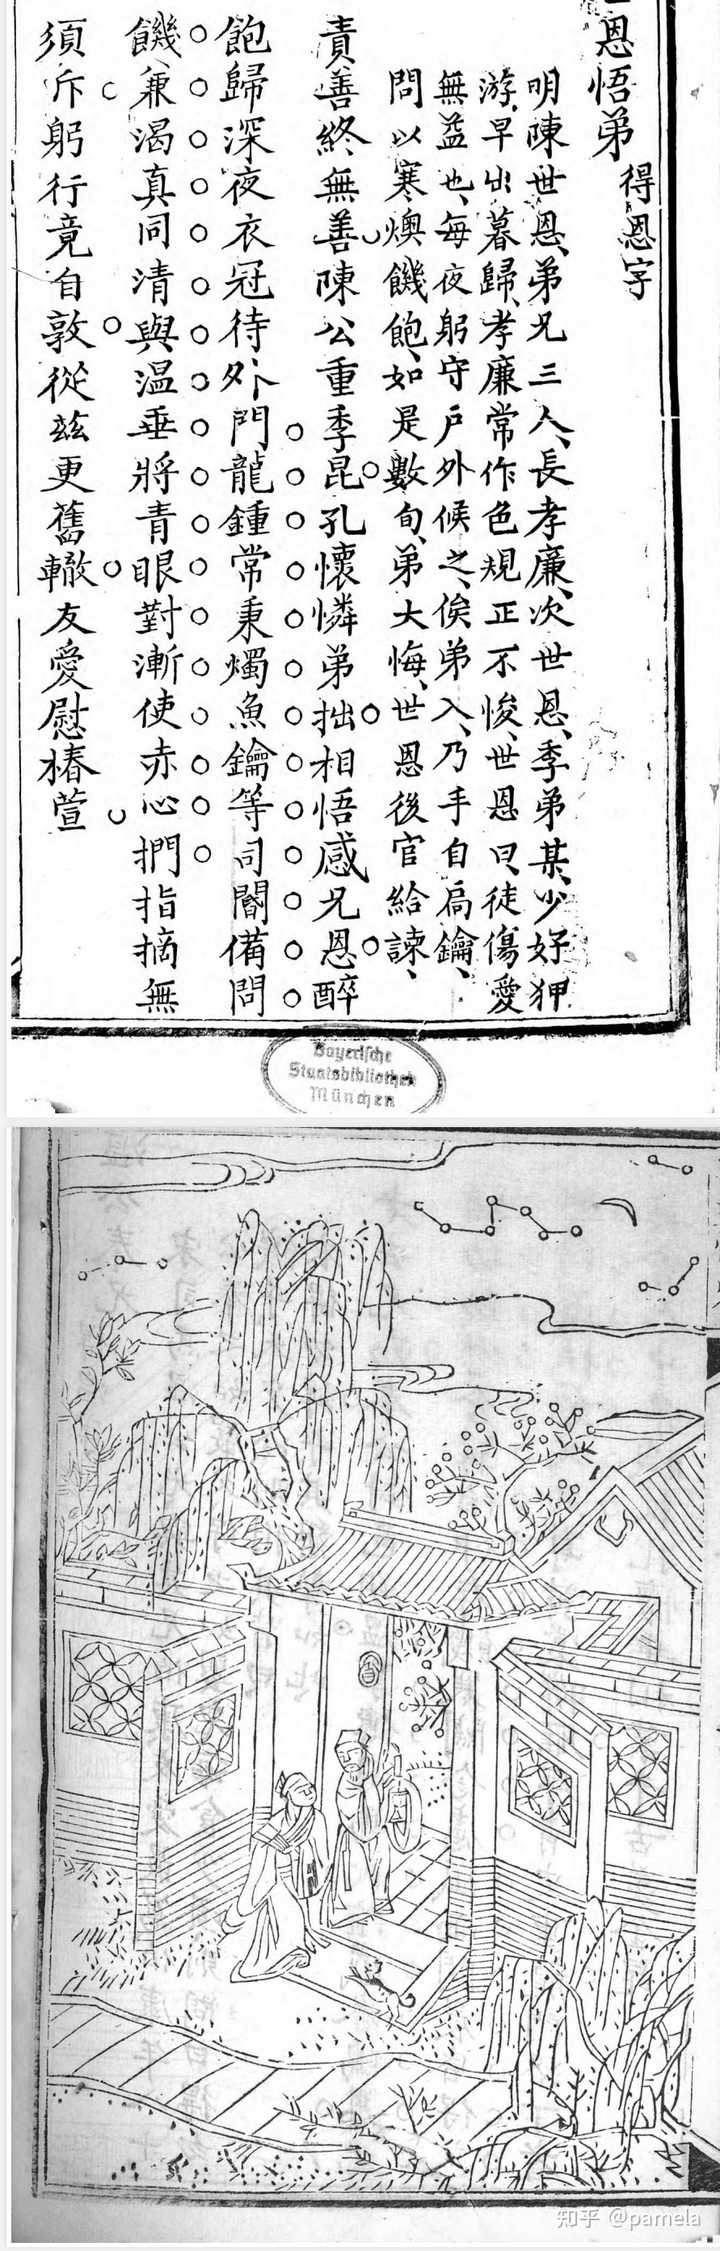 恩悟弟 得恩字
明陳世恩、弟兄三人、長孝廉、次世恩、季弟某、少好狎
游、早出暮歸、孝廉常作色規正不悛、世恩曰、徒傷愛
無益也、每夜躬守戶外候之、俟弟入、乃手自扃鑰、
問以寒燠饑飽、如是數旬、弟大悔、世恩後官給諫、
責善終無善陳公重季昆孔懷憐弟拙相悟感兄恩醉
飽歸深夜衣冠待外門龍鍾常秉燭魚鑰等司閽備問
饑兼渴真同清與溫垂將青眼對漸使赤心捫指摘無
須斥躬行竟自敦從茲更舊轍友愛慰椿萱
Bayerische
Staatsbibliothek
München
知乎 @pamela